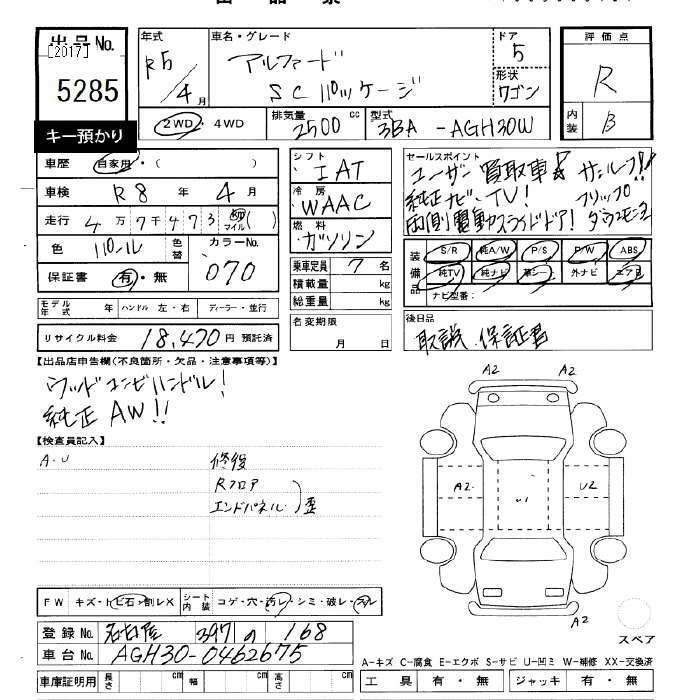 出品票
出品No.
[2017]
5285
キー預かり
年式
R5/4月
車名・グレード
アルファード
SCパッケージ
ドア
5
形状
ワゴン
評価点
R
内装
B
2WD・4WD
排気量
2500cc
型式
3BA-AGH30W
車歴 自家用・( )
車検 R8年4月
走行 4万7千473km マイル( )
色 パール 色替
カラーNo. 070
保証書 有・無
シフト IAT
冷房 WAAC
燃料 ガソリン
乗車定員 7名
積載量 kg
総重量 kg
セールスポイント
ユーザー買取車 サンルーフ!!
純正ナビ・TV! フリップ
両側電動スライドドア! ダウンモニター
装備品
S/R 純A/W P/S P/W ABS
純TV 純ナビ 革シート 外ナビ エアB
ナビ型番:
モデル年式 年 ハンドル 左・右 ディーラー・並行
リサイクル料金 18,470円 預託済
名変期限 月 日
後日品
取説.保証書
【出品店申告欄(不良箇所・欠品・注意事項等)】
ウッドコンビハンドル!
純正AW!!
【検査員記入】
A・U
修復
Rフロア
エンドパネル 歪
A2 A2
A2 U1 U2
A2
スペア
FW キズ・トビ石・割レX
シート内装 コゲ・穴・汚レ・シミ・破レ・スレ
登録No. 名古屋 397 の 168
車台No. AGH30-0462675
車庫証明用 長さ cm 幅 cm 高さ cm
A-キズ C-腐食 E-エクボ S-サビ U-凹ミ W-補修 XX-交換済
工具 有・無 ジャッキ 有・無